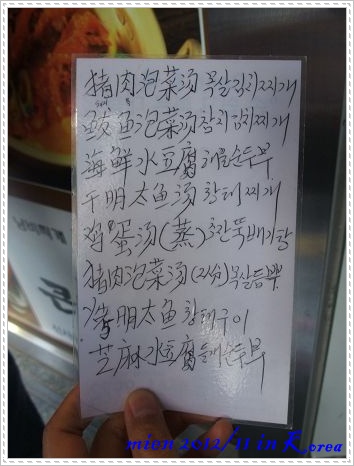 猪肉泡菜汤 목살김치찌개
鮁鱼泡菜汤 참치김치찌개
海鲜水豆腐 해물순두부
干明太鱼汤 황태찌개
鸡蛋汤(蒸) 계란뚝배기탕
猪肉泡菜汤(2人分) 목살듬뿍
烤明太鱼 황태구이
芝麻水豆腐 들깨순두부
mion 2012/11 in Korea